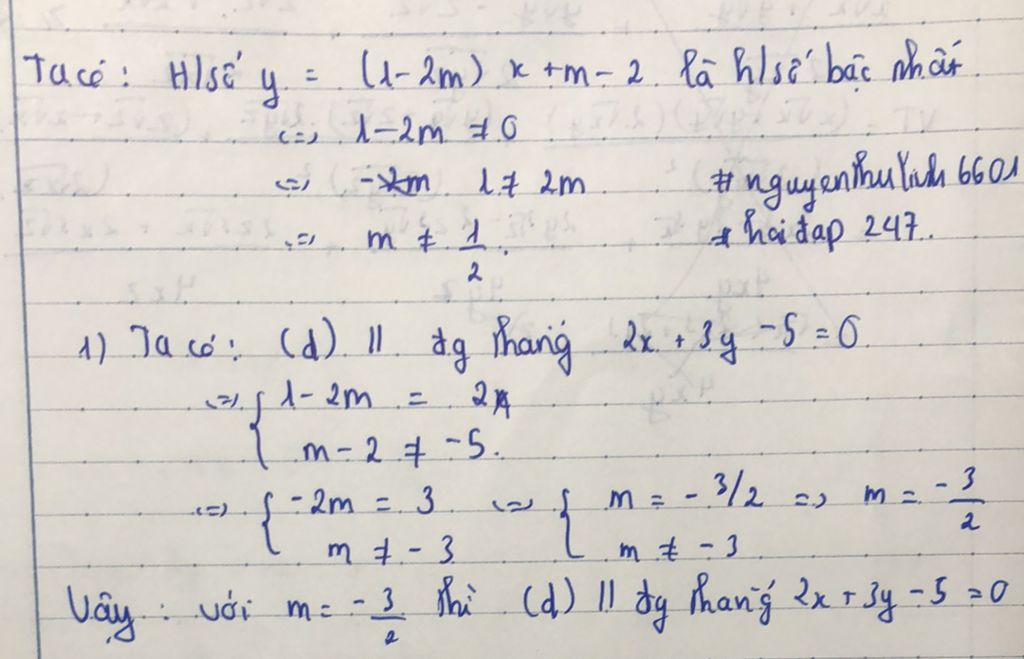 Ta có : H/số y = (1-2m) x + m - 2 là h/số bậc nhất.
<=> 1-2m ≠ 0
<=> 1 ≠ 2m # nguyenthulinh 6601
<=> m ≠ 1/2 . * hoi đap 247.
1) Ta có : (d) // đg thẳng 2x + 3y - 5 = 0
<=> { 1 - 2m = 2
m - 2 ≠ -5.
<=> { -2m = 3 <=> { m = - 3/2 => m = - 3/2
m ≠ - 3 m ≠ - 3
Vậy : với m = - 3/2 thì (d) // đg thẳng 2x + 3y - 5 = 0